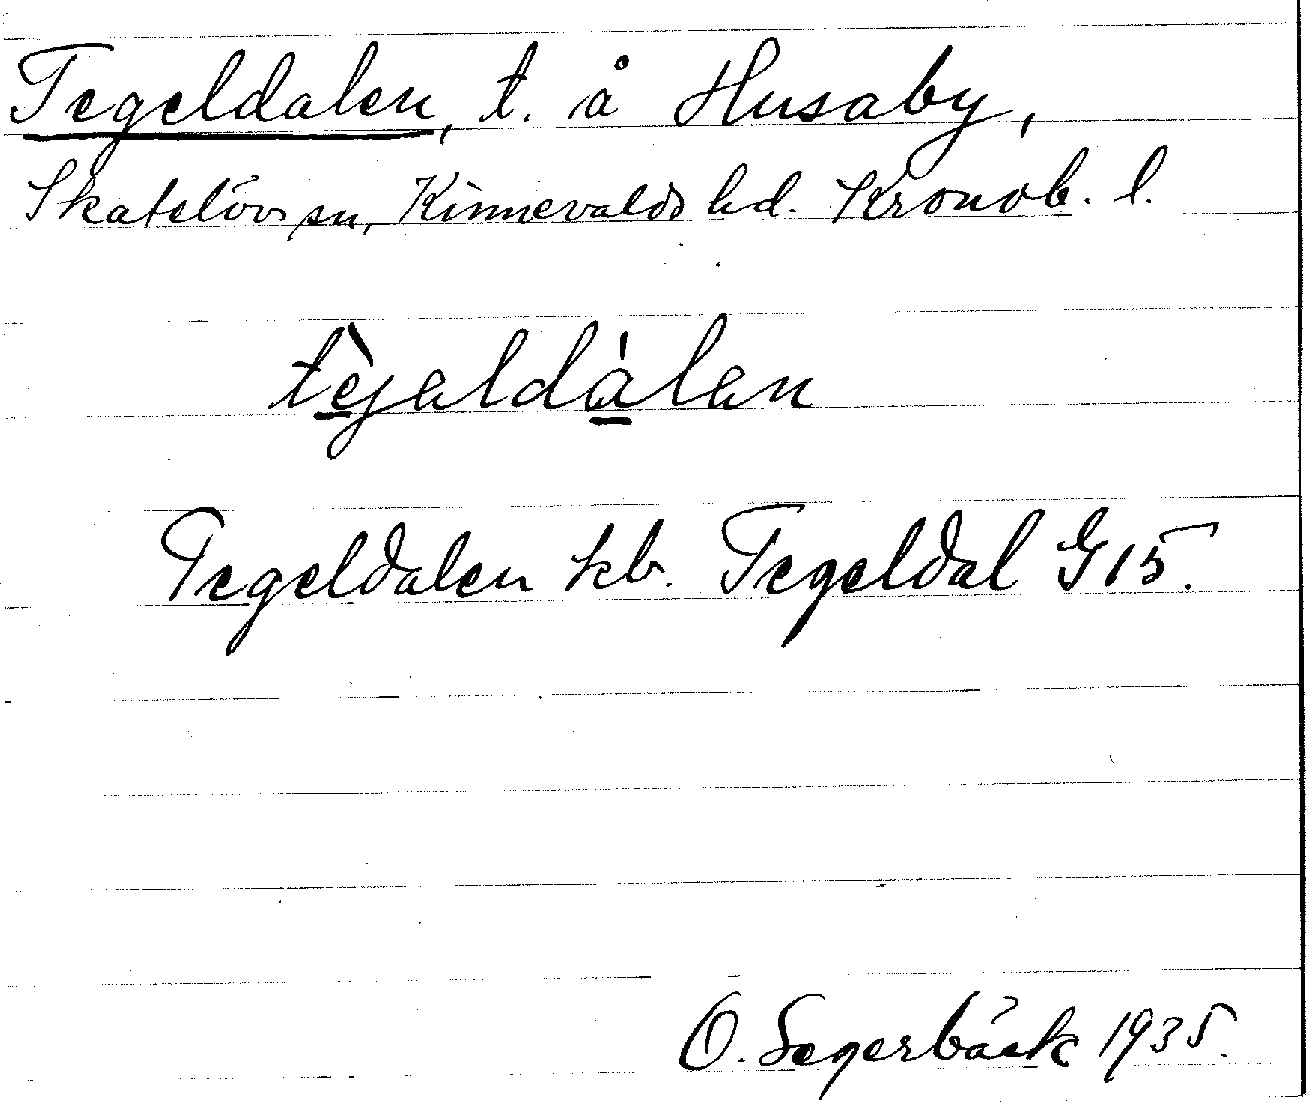 Tegeldalen, t. å Husaby,
Skatelövs sn, Kinnevalds hd. Kronob. l.
tèjeldálen
Tegeldalen kb. Tegeldal G15.
O. Segerbäck 1935.